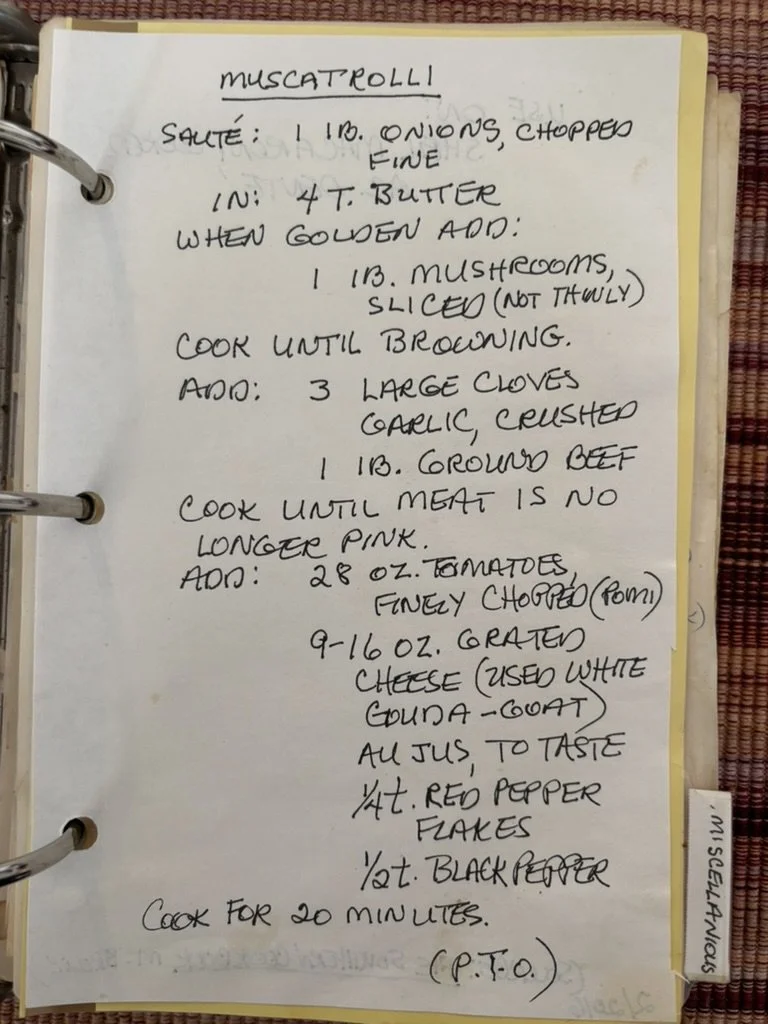 MUSCATROLLI
SAUTÉ: 1 lB. ONIONS, CHOPPED
FINE
IN: 4 T. BUTTER
WHEN GOLDEN ADD:
1 lB. MUSHROOMS,
SLICED (NOT THINLY)
COOK UNTIL BROWNING.
ADD: 3 LARGE CLOVES
GARLIC, CRUSHED
1 lB. GROUND BEEF
COOK UNTIL MEAT IS NO
LONGER PINK.
ADD: 28 OZ. TOMATOES,
FINELY CHOPPED (POMI)
9-16 OZ. GRATED
CHEESE (USED WHITE
GOUDA - GOAT)
AU JUS, TO TASTE
1/4 t. RED PEPPER
FLAKES
1/2 t. BLACK PEPPER
COOK FOR 20 MINUTES.
(P.T.O.)
MISCELLANIOUS